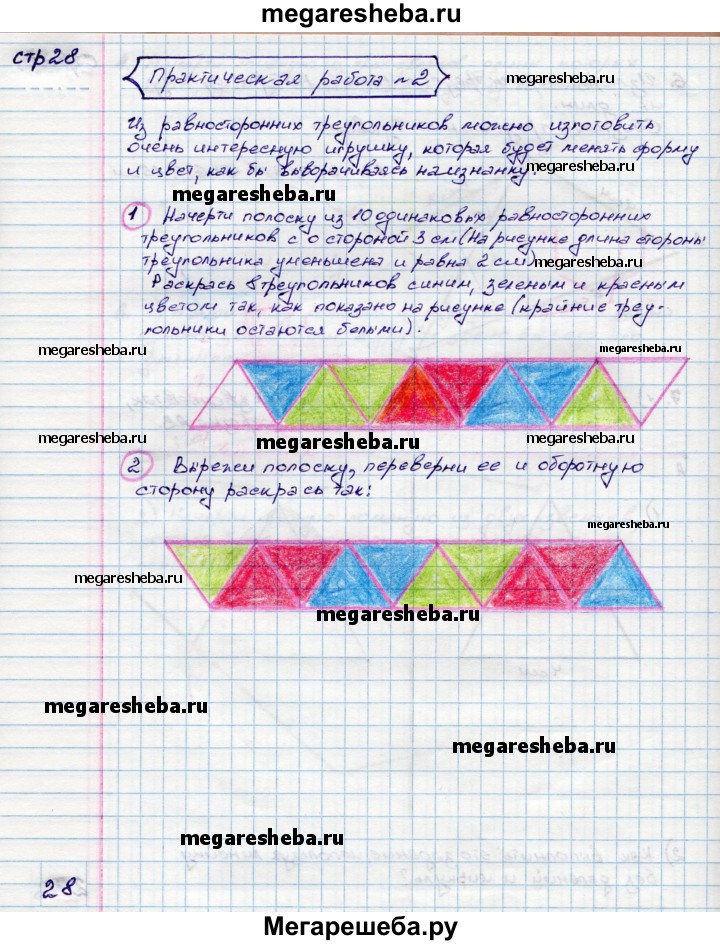 megaresheba.ru
стр 28
Практическая работа №2
megaresheba.ru
Из равносторонних треугольников можно изготовить
очень интересную игрушку, которая будет менять форму
и цвет, как бы выворачиваясь наизнанку.
megaresheba.ru
megaresheba.ru
1 Начерти полоску из 10 одинаковых равносторонних
треугольников с о стороной 3 см (На рисунке длина стороны
треугольника уменьшена и равна 2 см)
megaresheba.ru
Раскрась 8 треугольников синим, зеленым и красным
цветом так, как показано на рисунке (крайние треу-
гольники остаются белыми).
megaresheba.ru
megaresheba.ru
megaresheba.ru
megaresheba.ru
megaresheba.ru
2 Вырежи полоску, переверни ее и оборотную
сторону раскрась так:
megaresheba.ru
megaresheba.ru
megaresheba.ru
megaresheba.ru
megaresheba.ru
megaresheba.ru
28
Мегарешеба.ру